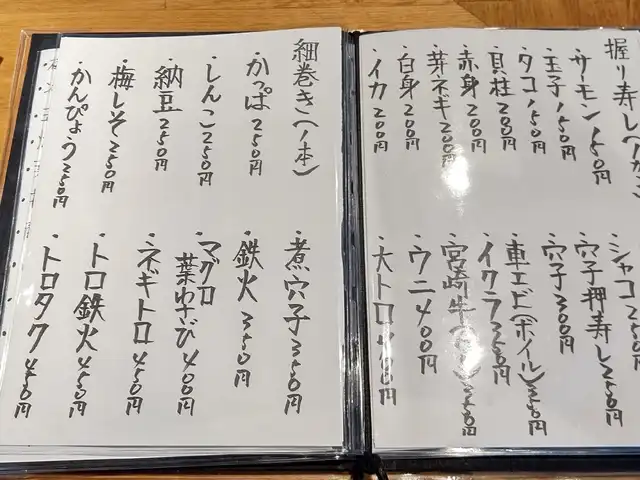 握り寿し
・サーモン 150円
・玉子 150円
・タコ 150円
・貝柱 200円
・赤身 200円
・芽ネギ 200円
・白身 200円
・イカ 200円
・シャコ 250円
・穴子押寿し 250円
・穴子 300円
・車エビ(ボイル)
・イクラ 350円
・宮崎牛
・ウニ 400円
・大トロ 400円
細巻き(1本)
・かっぱ 250円
・しんこ 250円
・納豆 250円
・梅しそ 250円
・かんぴょう 250円
・煮穴子 350円
・鉄火 350円
・マグロ
葉わさび 400円
・ネギトロ 450円
・トロ鉄火 450円
・トロタク 450円